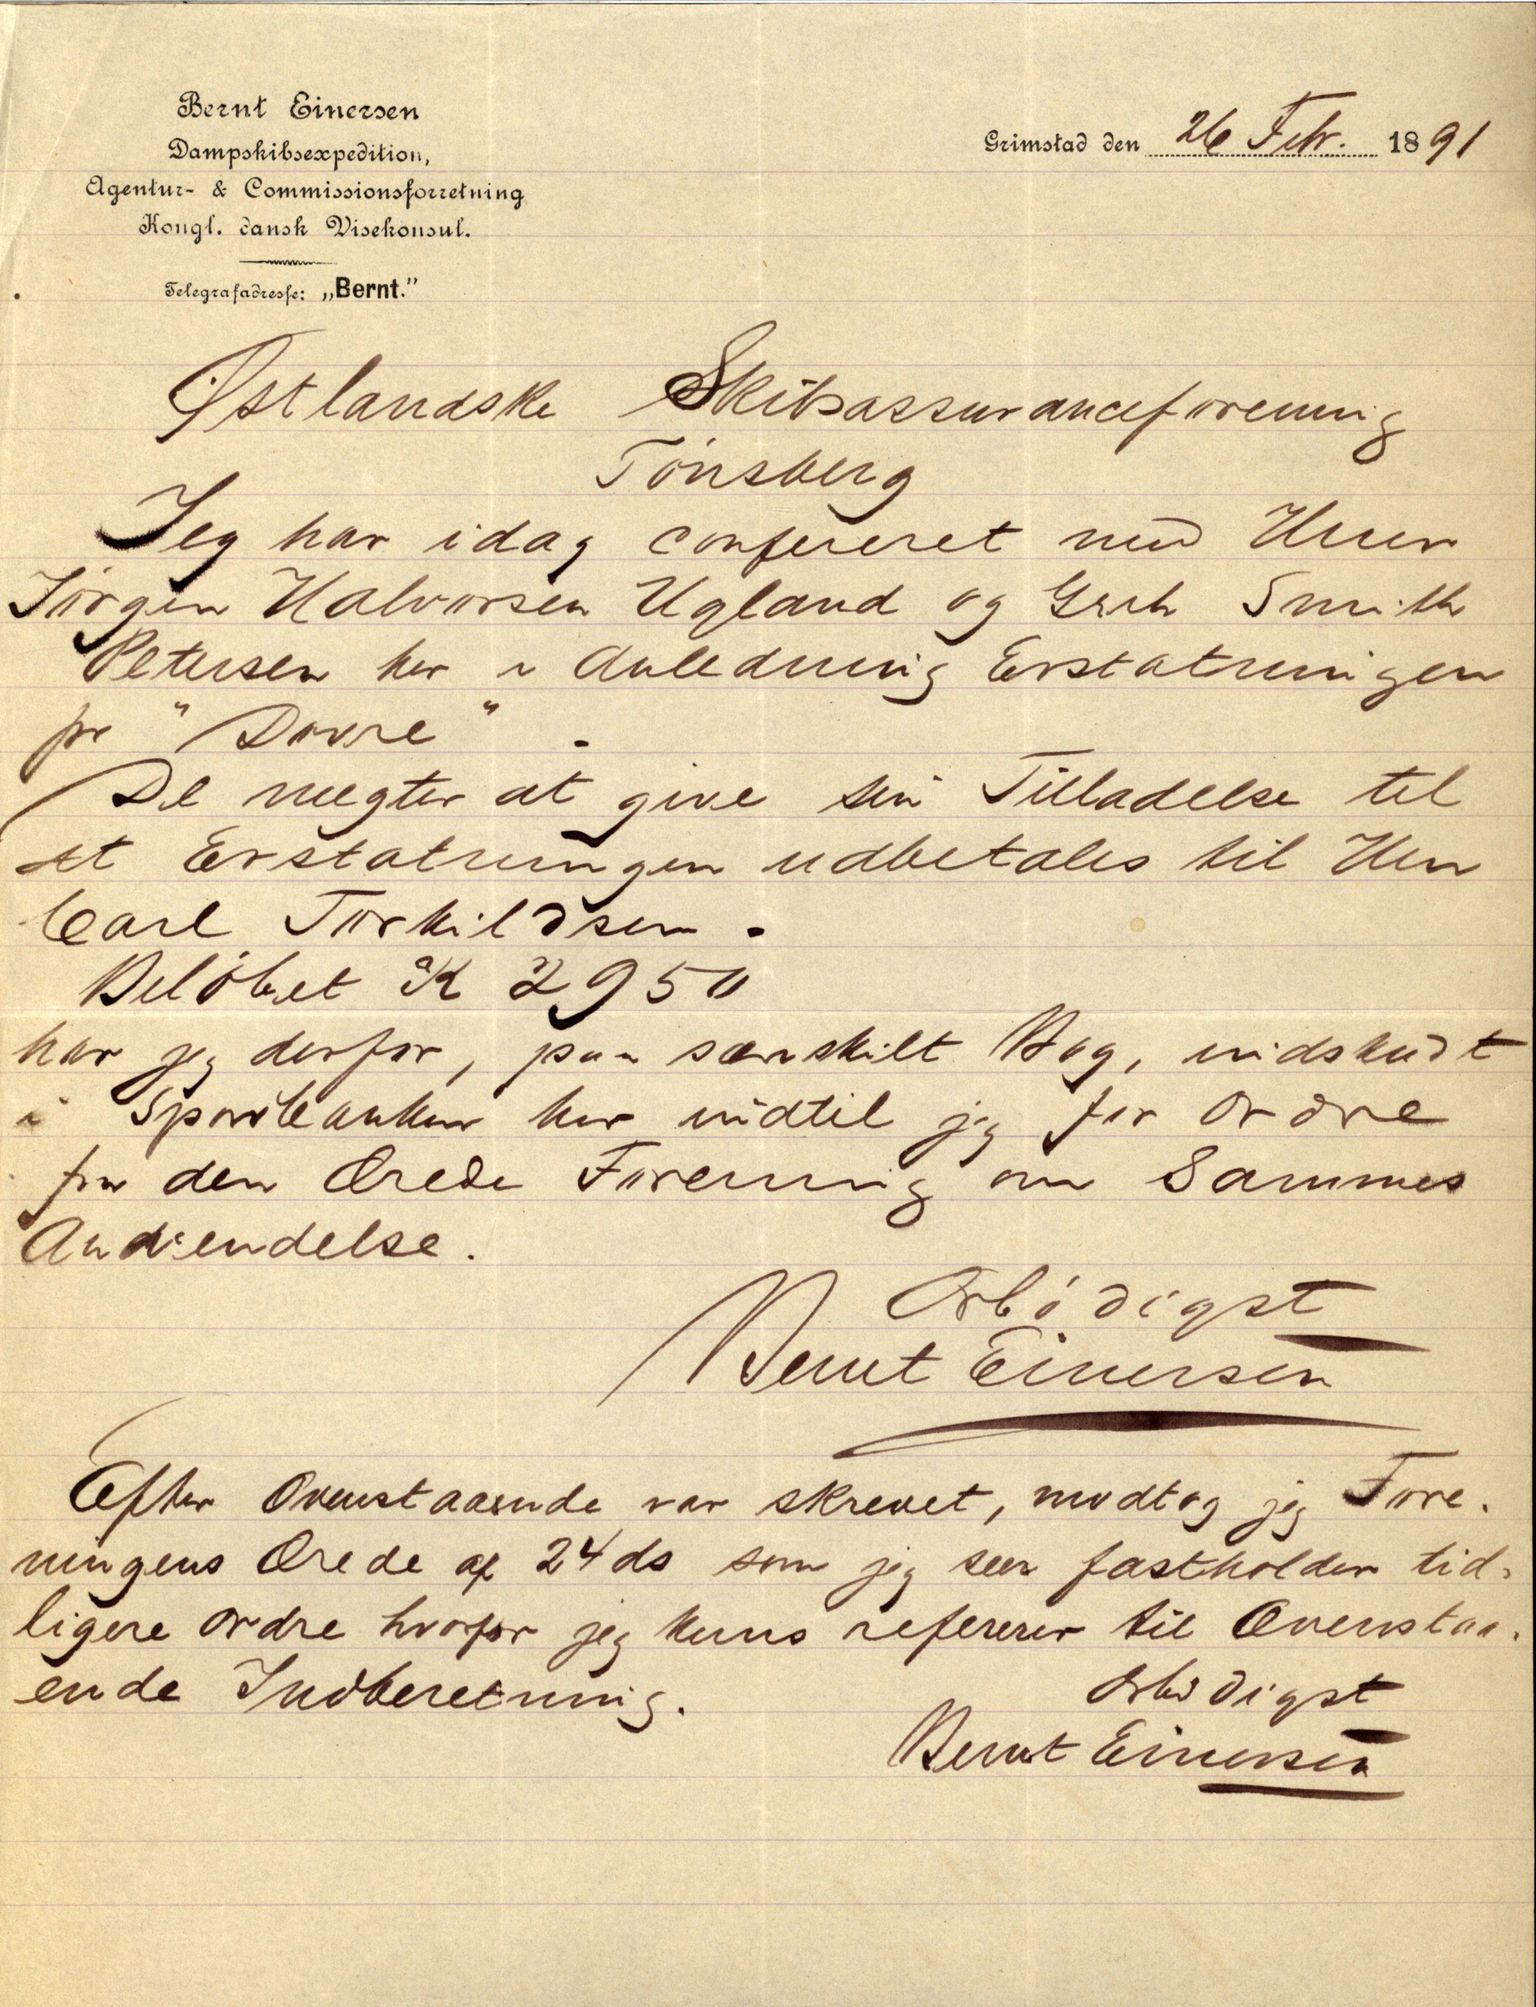 Bernt Einersen
Dampskibsexpedition,
Agentur- & Commissionsforretning
Kongl. dansk Visekonsul.
Telegrafadresse: „Bernt."
Grimstad den 26 Febr. 1891
Østlandske Skibsassuranceforening
Tönsberg
Jeg har idag confereret med Herrer
Jørgen Halvorsen Ugland og Smith
Petersen her i Anledning Erstatningen
pr "Dovre".
De nægter at give sin Tilladelse til
at Erstatningen udbetales til Herr
Carl Torkildsen.
Beløbet K 2950
har jeg derfor, paa særskilt Bog, indskudt
i Sparebanken her indtil jeg før Ordre
fra den Ærede Forening om Sammes
Andvendelse.
Ærbödigst
Bernt Einersen
Efter Ovenstaaende var skrevet, modtog jeg Fore-
ningens Ærede af 24ds som jeg seer fastholder tid-
ligere Ordre hvorfor jeg kuns refererer til Ovenstaa-
ende Indberetning.
Ærbödigst
Bernt Einersen